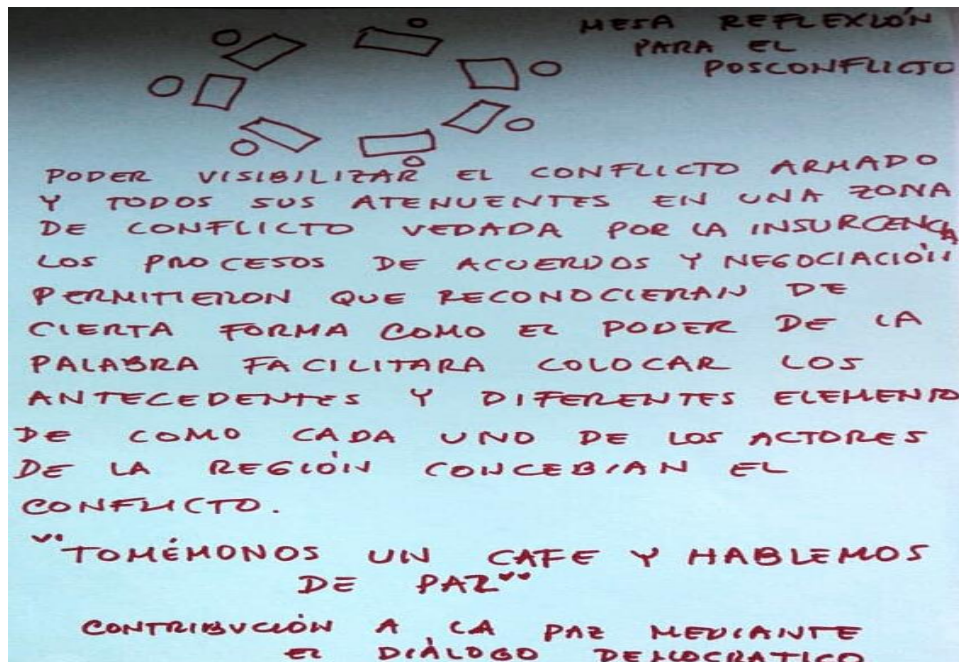 MESA REFLEXIÓN
PARA EL
POSCONFLICTO
PODER VISIBILIZAR EL CONFLICTO ARMADO
Y TODOS SUS ATENUENTES EN UNA ZONA
DE CONFLICTO VEDADA POR LA INSURGENCIA
LOS PROCESOS DE ACUERDOS Y NEGOCIACIÓN
PERMITIERON QUE RECONOCIERAN DE
CIERTA FORMA COMO EL PODER DE LA
PALABRA FACILITARA COLOCAR LOS
ANTECEDENTES Y DIFERENTES ELEMENTO
DE COMO CADA UNO DE LOS ACTORES
DE LA REGIÓN CONCEBIAN EL
CONFLICTO.
"TOMÉMONOS UN CAFE Y HABLEMOS
DE PAZ"
CONTRIBUCIÓN A LA PAZ MEDIANTE
EL DIÁLOGO DEMOCRATICO